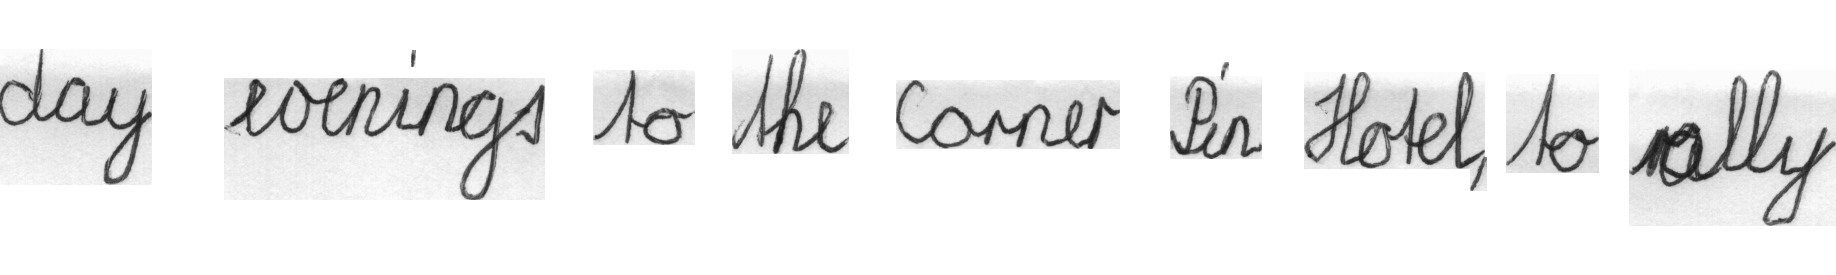 day evenings to the Corner Pin Hotel, to rally